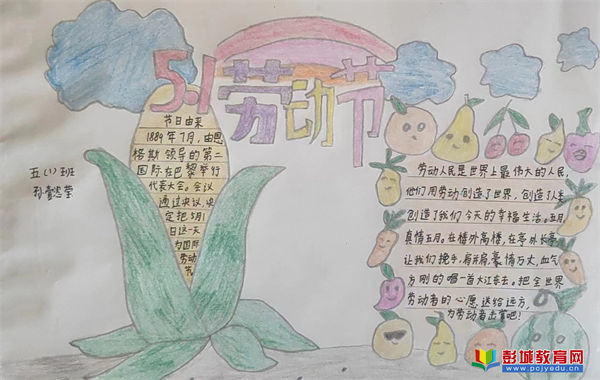 5.1劳动节
节日由来
1889年7月,由恩
格斯领导的第二
国际在巴黎举行
代表大会。会议
通过决议,决
定把5月1
日这一天
为国际
劳动
节。
五(1)班
劳动人民是世界上最伟大的人民,
他们用劳动创造了世界,创造了人类
创造了我们今天的幸福生活。五月
真情五月。在楼外高楼,在亭外长亭
让我们挽手,肩并肩,豪情万丈,血气
方刚的唱一首大江东去。把全世界
劳动者的心愿,送给远方,
为劳动者击掌吧!
彭城教育网
www.pcjyedu.cn